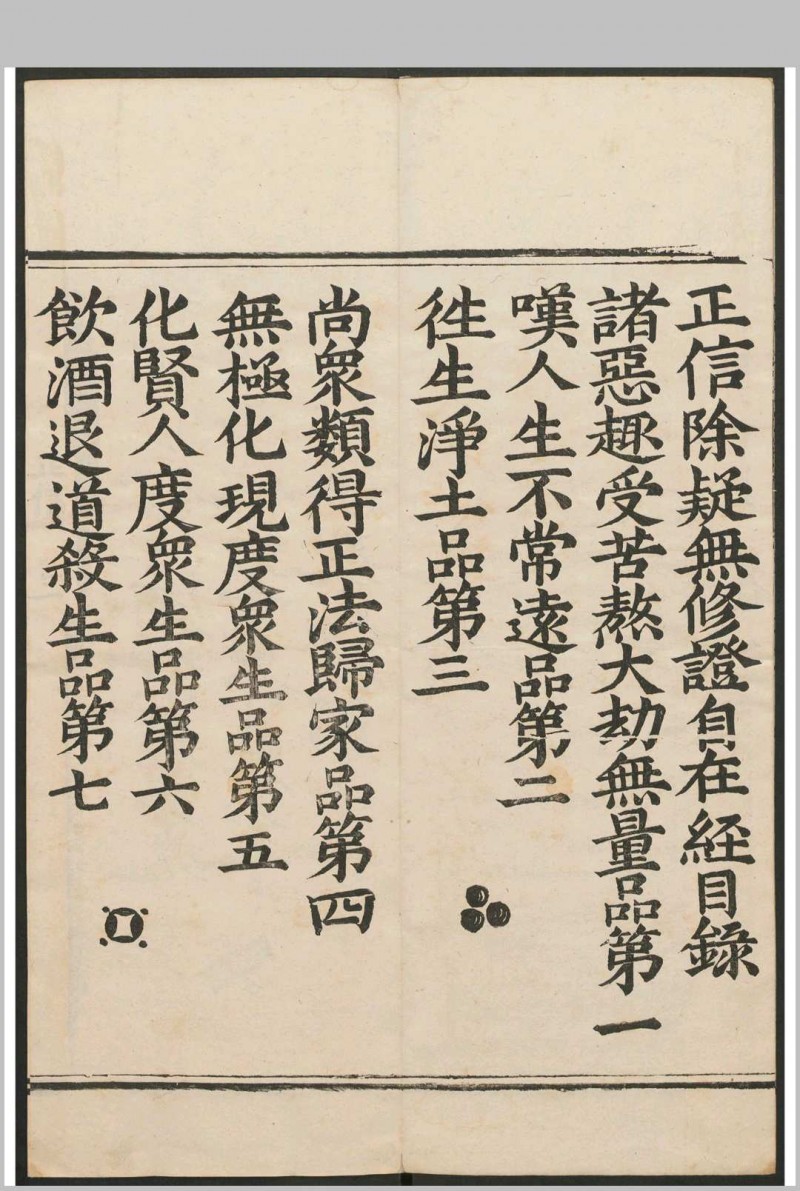 正信除疑無修證自在経目録
諸惡趣受苦熬大劫無量品第一
嘆人生不常遠品第二
徃生淨土品第三
尚衆類得正法歸家品第四
無極化現度衆生品第五
化賢人度衆生品第六
飲酒退道殺生品第七